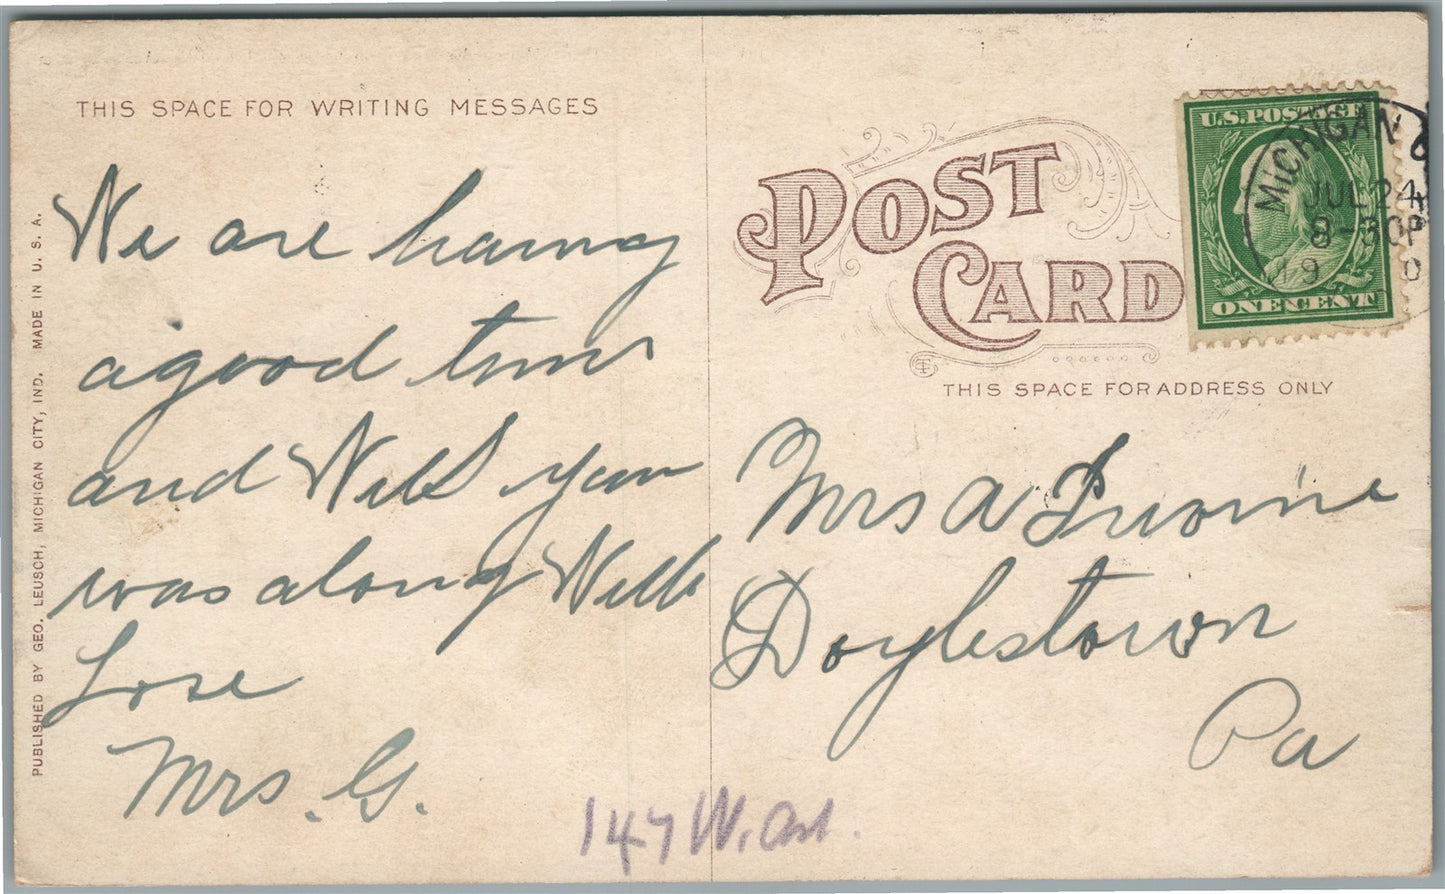 THIS SPACE FOR WRITING MESSAGES
We are having
a good time
and Wish you
was along With
Love
Mrs. G.
PUBLISHED BY GEO. LEUSCH, MICHIGAN CITY, IND. MADE IN U. S. A.
POST
CARD
THIS SPACE FOR ADDRESS ONLY
U.S. POSTAGE
ONE CENT
MICHIGAN
JUL 24
8-30P
19 0
Mrs A
Doylestown
Pa
147 W.